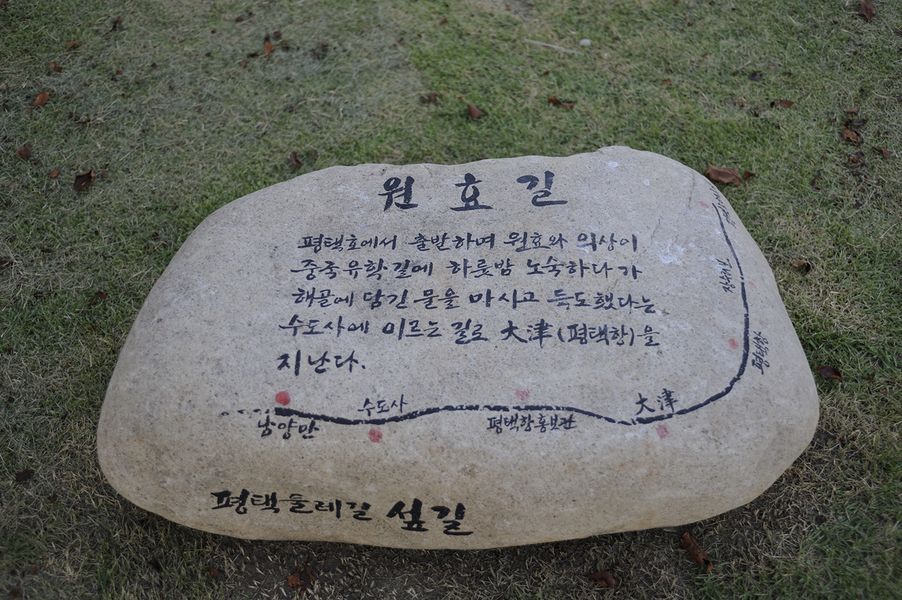 원효길
평택호에서 출발하며 원효와 의상이
중국유학길에 하룻밤 노숙하다가
해골에 담긴 물을 마시고 득도했다는
수도사에 이르는 길로 大津(평택항)을
지난다.
장수리
평택항
수도사
大津
남양만
평택항홍보관
평택둘레길 섶길